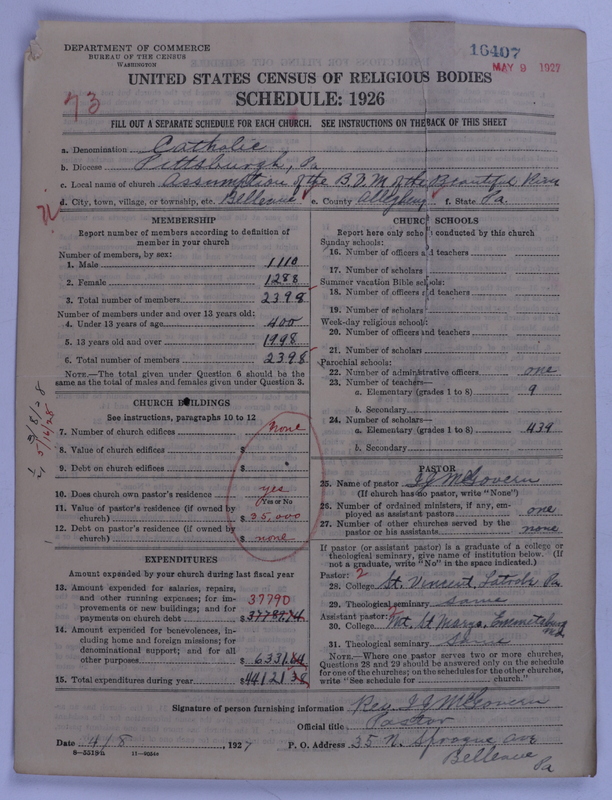 DEPARTMENT OF COMMERCE
BUREAU OF THE CENSUS
WASHINGTON
16407
MAY 9 1927
UNITED STATES CENSUS OF RELIGIOUS BODIES
SCHEDULE: 1926
73
FILL OUT A SEPARATE SCHEDULE FOR EACH CHURCH. SEE INSTRUCTIONS ON THE BACK OF THIS SHEET
a. Denomination Catholic
b. Diocese Pittsburgh, Pa
c. Local name of church Assumption of the B.V.M of the Beautiful River
d. City, town, village, or township, etc. Bellevue e. County Allegheny f. State Pa.
MEMBERSHIP
Report number of members according to definition of
member in your church
Number of members, by sex:
1. Male 1110
2. Female 1288
3. Total number of members 2398
Number of members under and over 13 years old:
4. Under 13 years of age 400
5. 13 years old and over 1998
6. Total number of members 2398
NOTE.—The total given under Question 6 should be the
same as the total of males and females given under Question 3.
CHURCH BUILDINGS
See instructions, paragraphs 10 to 12
7. Number of church edifices None
8. Value of church edifices $
9. Debt on church edifices $
10. Does church own pastor's residence yes
(Yes or No
11. Value of pastor's residence (if owned by
church) $ 35,000
12. Debt on pastor's residence (if owned by
church) $ none
EXPENDITURES
Amount expended by your church during last fiscal year
13. Amount expended for salaries, repairs,
and other running expenses; for im-
provements or new buildings; and for
payments on church debt 37790
$ 37789.74
14. Amount expended for benevolences, in-
cluding home and foreign missions; for
denominational support; and for all
other purposes $ 6331.64
15. Total expenditures during year $ 44121 38
CHURCH SCHOOLS
Report here only schools conducted by this church
Sunday schools:
16. Number of officers and teachers
17. Number of scholars
Summer vacation Bible schools:
18. Number of officers and teachers
19. Number of scholars
Week-day religious schools:
20. Number of officers and teachers
21. Number of scholars
Parochial schools:
22. Number of administrative officers one
23. Number of teachers—
a. Elementary (grades 1 to 8) 9
b. Secondary
24. Number of scholars—
a. Elementary (grades 1 to 8) 439
b. Secondary
PASTOR
25. Name of pastor J J McGovern
(If church has no pastor, write "None")
26. Number of ordained ministers, if any, em-
ployed as assistant pastors one
27. Number of other churches served by the
pastor or his assistants none
If pastor (or assistant pastor) is a graduate of a college or
theological seminary, give name of institution below. (If
not a graduate, write "No" in the space indicated.)
Pastor: 2
28. College St. Vincent, Latrobe Pa
29. Theological seminary Same
Assistant pastor:
30. College Mt. St Marys, Emmitsburg Md
31. Theological seminary Same
NOTE.—Where one pastor serves two or more churches,
Questions 28 and 29 should be answered only on the schedule
for one of the churches; on the schedules for the other churches,
write "See schedule for church."
Signature of person furnishing information Rev. J J McGovern
Official title Pastor
Date 4/8, 1927 P. O. Address 35 N. Sprague Ave
Bellevue
Pa
8—5319b 11—9054e